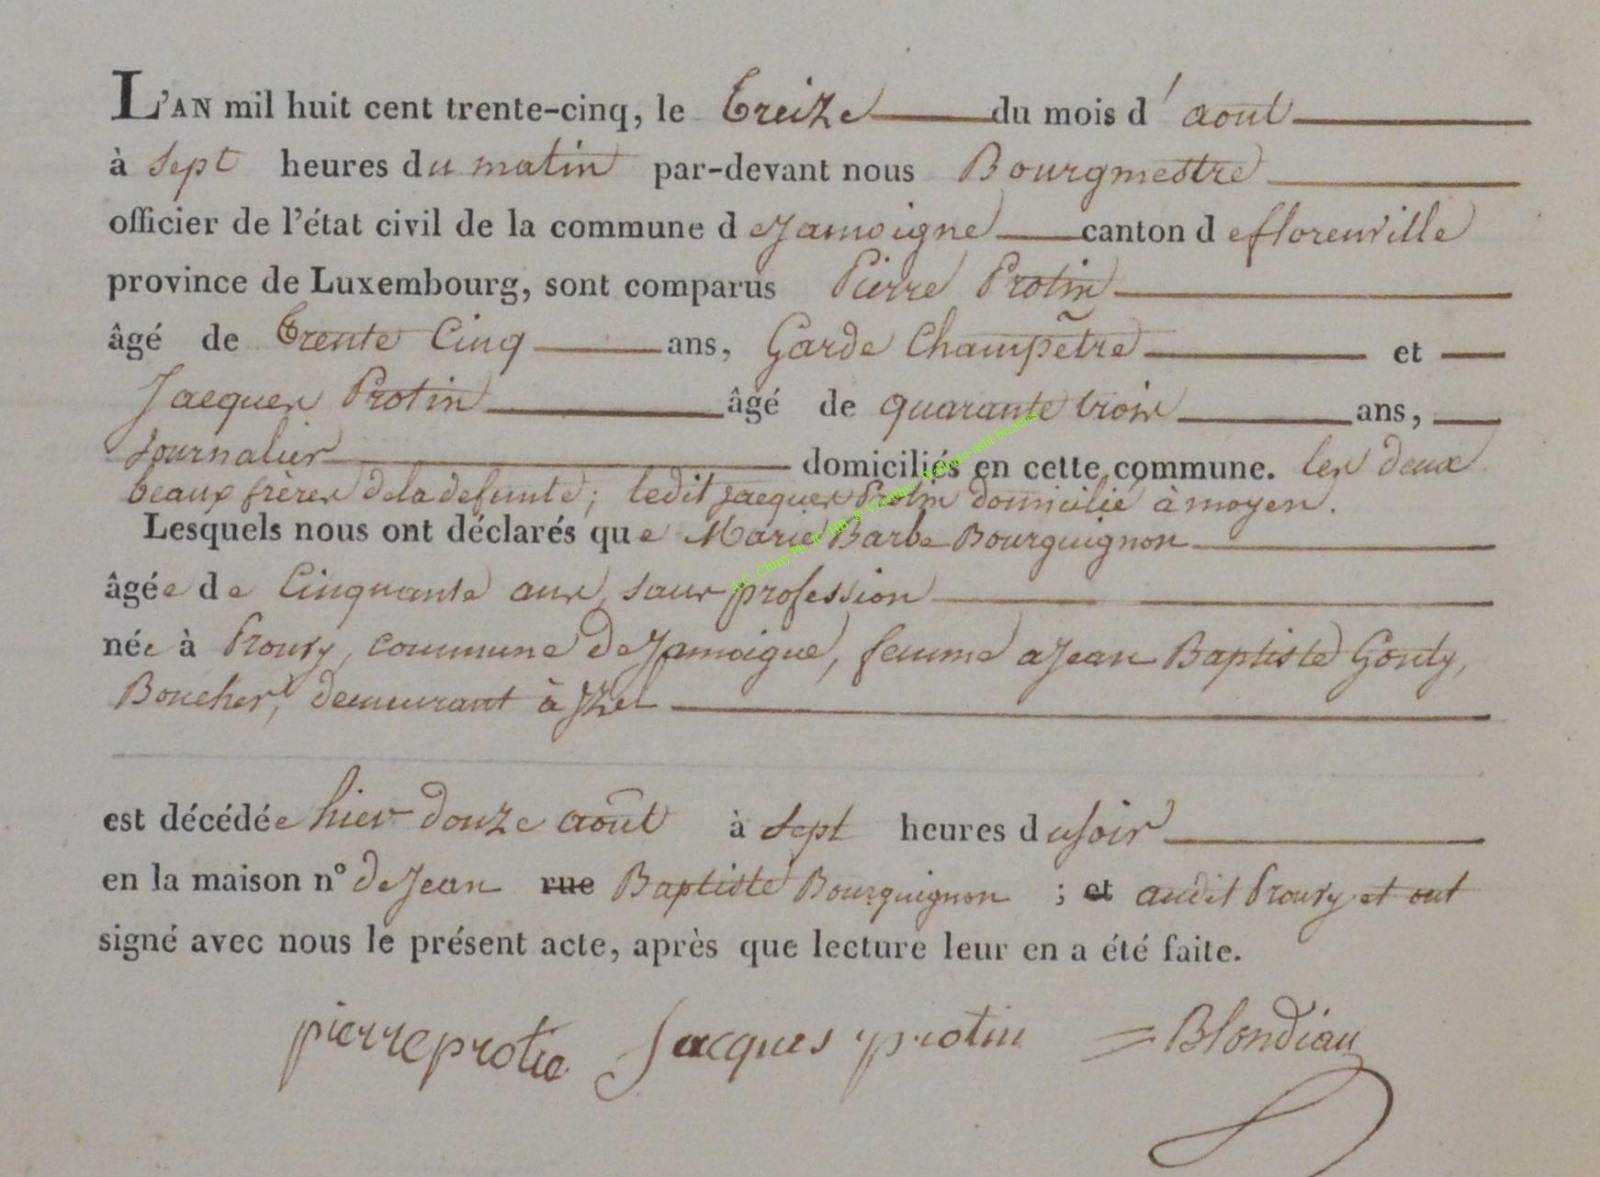 L'AN mil huit cent trente-cinq, le Treize du mois d'aout
à Sept heures du matin par-devant nous Bourgmestre
officier de l'état civil de la commune de Jamoigne canton de florenville
province de Luxembourg, sont comparus Pierre Protin
âgé de trente Cinq ans, Garde Champêtre et
Jacques Protin âgé de quarante trois ans,
Journalier domiciliés en cette commune. les deux
beaux frères de la defunte; ledit Jacques Protin domicilié à moyen.
Lesquels nous ont déclarés que Marie Barbe Bourguignon
âgée de Cinquante ans, sans profession
née à Prouvy, commune de Jamoigne, femme a Jean Baptiste Gouly,
Boucher, demeurant à Izel
est décédée hier douze août à Sept heures du soir
en la maison n° de Jean rue Baptiste Bourguignon ; et audit Prouvy et ont
signé avec nous le présent acte, après que lecture leur en a été faite.
pierre protin Jacques protin Blondiau